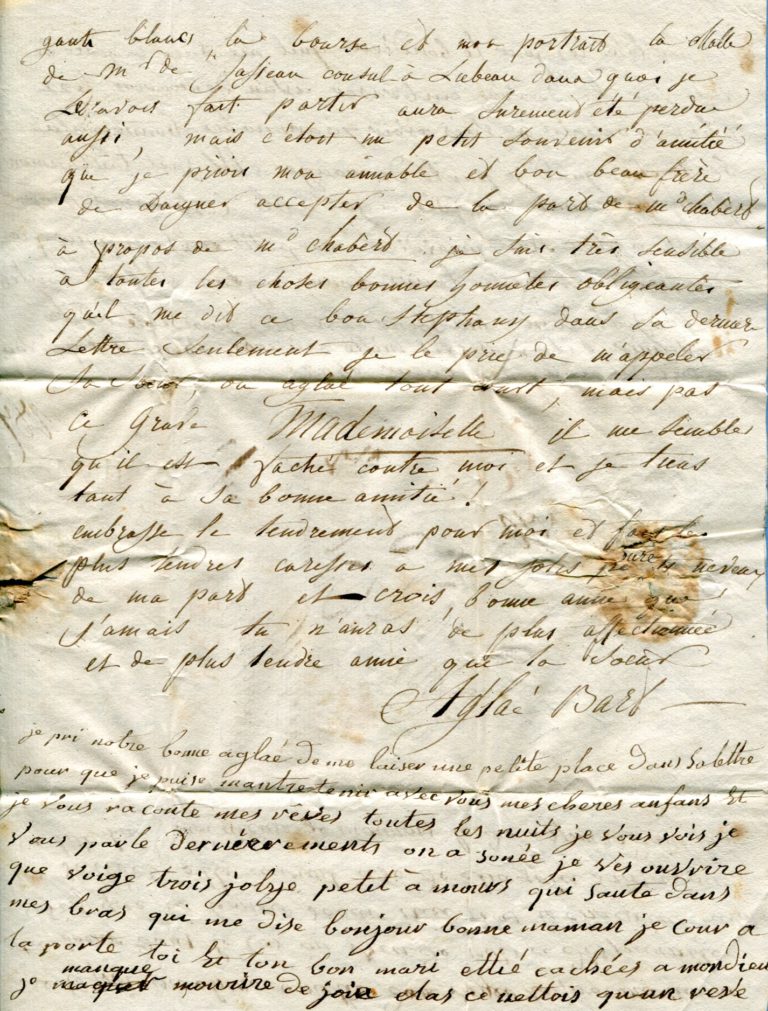 gants blancs, la bourse et mon portrait la Malle
de Mr de Sasseau consul à Lubeau dans quoi je
L'avois fait partir aura surement été perdue
aussi, mais c'étoit un petit souvenir d'amitié
que je priois mon aimable et bon beau frère
de Daigner accepter de la part de md chabert
à propos de md chabert je suis très sensible
à toutes les choses bonnes honnêtes obligeantes
qu'el me dit ce bon Stephany dans sa derniere
Lettre Seulement je le prie de m'appeler
Sa Soeur, ou aglaé tout court, mais pas
ce Grave Mademoiselle, il me semble
qu'il est fâché contre moi et je tiens
tant à sa bonne amitié!
embrasse le tendrement pour moi et fais les
plus tendres caresses à mes jolis petits neveux
de ma part et crois, bonne amie que
j'amais tu n'auras de plus affectionnée
et de plus tendre amie que la Soeur
Aglaé Bart
je pri notre bonne aglaé de me laiser une petite place dans sa lettre
pour que je puise mantretenir avec vous mes cheres anfans Et
je vous raconte mes rêves toutes les nuits je vous vois je
vous parle dernièrements on a sonée je ves ouvrire
que voige trois jolye petit à mours qui saute dans
mes bras qui me dise bonjour bonne maman je cour a
la porte toi Et ton bon mari ettié cachées a mondieu
je manque mourire de joie elas ce nettois qu'un reve